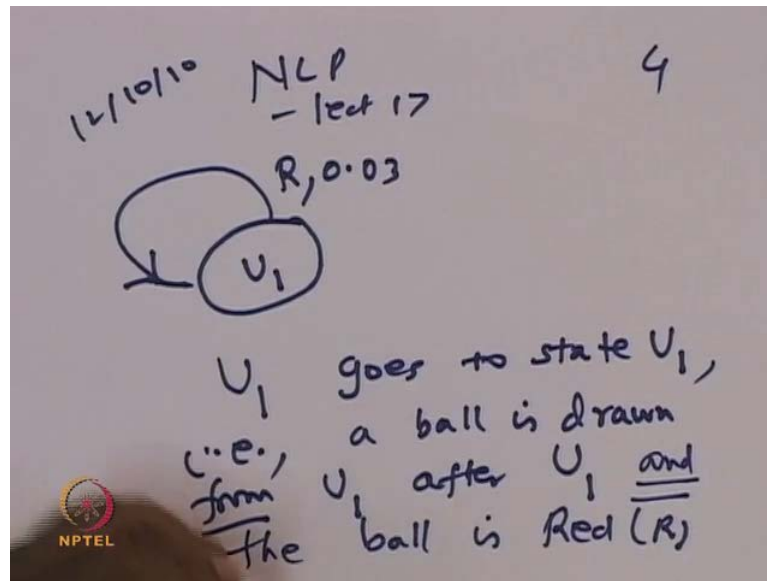 12/10/10 NLP 4
- lect 17
R, 0.03
U1
U1 goes to state U1,
i.e., a ball is drawn
from U1 after U1 and
the ball is Red (R)
NPTEL